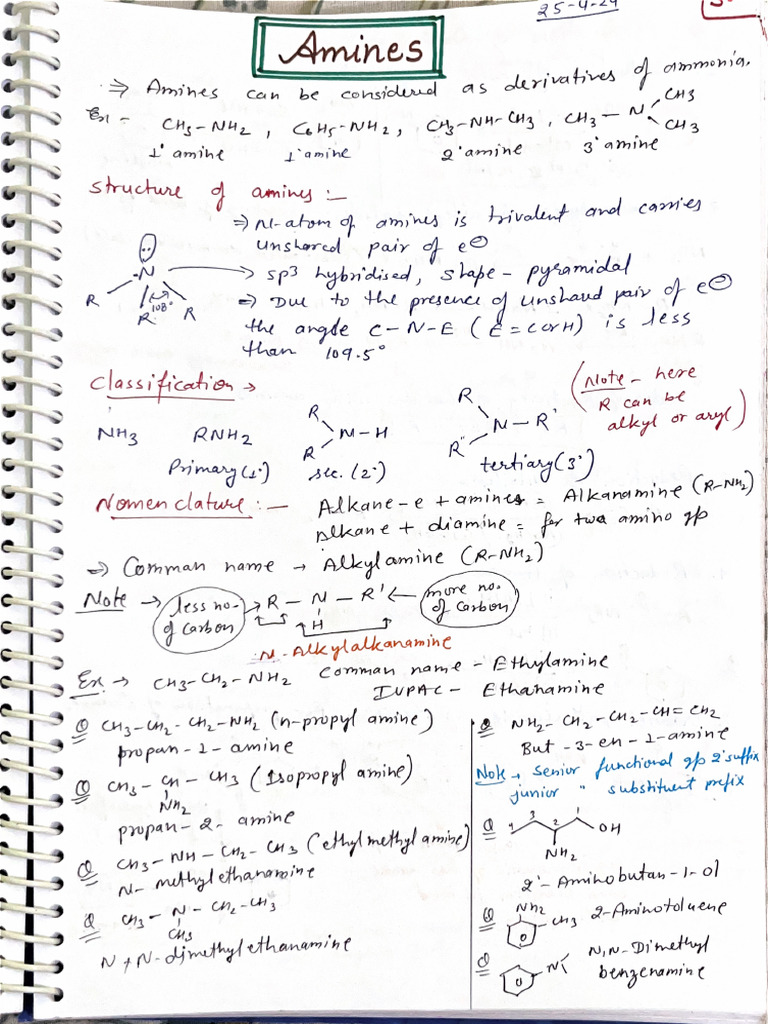 25-4-24
Amines
⇒ Amines can be considered as derivatives of ammonia.
Ex - CH3-NH2, C6H5-NH2, CH3-NH-CH3, CH3-N
CH3
CH3
1° amine 1° amine 2° amine 3° amine
Structure of amines :-
⇒ N-atom of amines is trivalent and carries
unshared pair of e⊖
sp3 hybridised, shape - pyramidal
⇒ Due to the presence of unshaud pair of e⊖
the angle C-N-E (E = C or H) is less
than 109.5°
N
R R R
108°
Classification →
(Note - here
R can be
alkyl or aryl)
NH3 RNH2
R
R
N-H
R
R"
N-R'
Primary (1°) sec. (2°) tertiary (3°)
Nomenclature :- Alkane-e + amines = Alkanamine (R-NH2)
Alkane + diamine = for two amino gp
⇒ Comman name → Alkylamine (R-NH2)
Note → less no. of carbon → R-N-R' ← more no. of carbon
H
N-Alkylalkanamine
Ex. → CH3-CH2-NH2 Comman name - Ethylamine
IUPAC - Ethanamine
Q CH3-CH2-CH2-NH2 (n-propyl amine)
propan-1-amine
Q CH3-CH-CH3 (Isopropyl amine)
NH2
propan-2-amine
Q CH3-NH-CH2-CH3 (ethylmethyl amine)
N-methylethanamine
Q CH3-N-CH2-CH3
CH3
N,N-dimethylethanamine
Q NH2-CH2-CH2-CH=CH2
But-3-en-1-amine
Note → senior functional gp 2° suffix
junior " substituent prefix
Q 4 3 2 1 OH
NH2
2-Aminobutan-1-ol
Q NH2
CH3 2-Aminotoluene
Q N N,N-Dimethyl
benzenamine